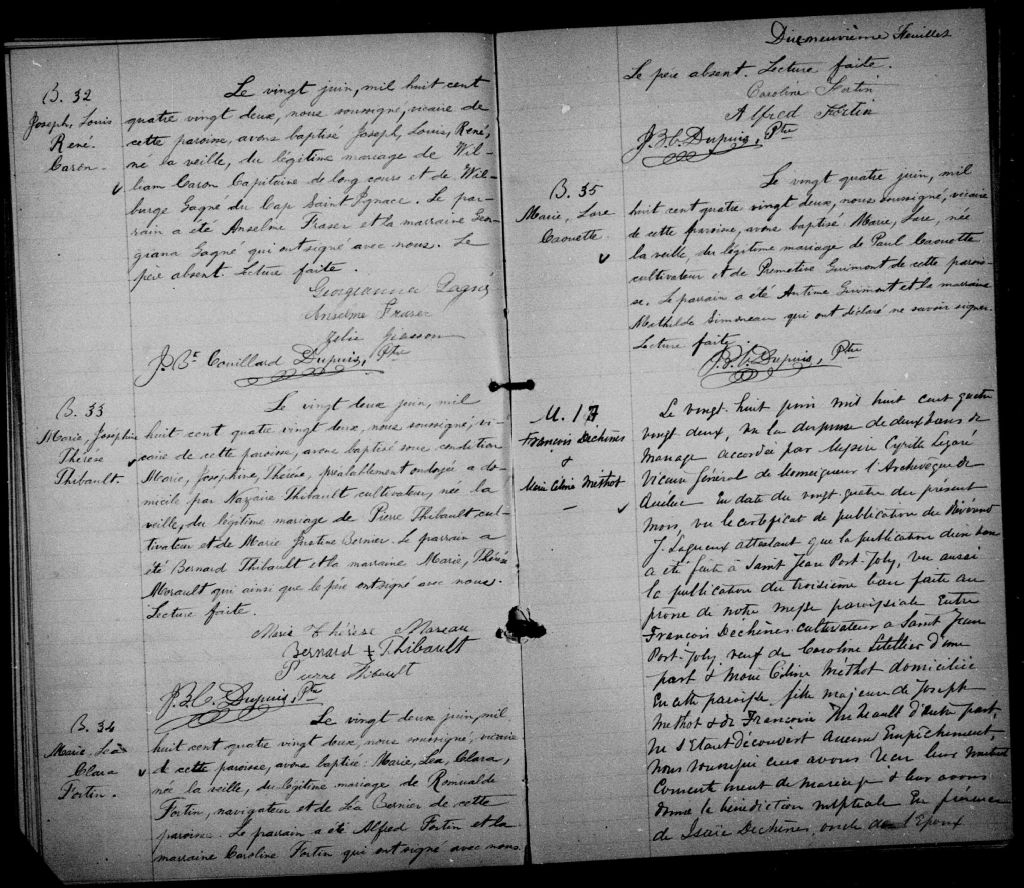 B. 32
Joseph, Louis
René
Caron.
Le vingt juin, mil huit cent
quatre vingt deux, nous soussigné, vicaire de
cette paroisse, avons baptisé Joseph, Louis, René,
né la veille, du légitime mariage de Wil-
liam Caron Capitaine de long cours et de Wil-
burge Gagné du Cap Saint Ignace. Le par-
rain a été Anselme Fraser et la marraine Geor-
giana Gagné qui ont signé avec nous. Le
père absent. Lecture faite.
Georgianna Gagné
Anselme Fraser
Zélie Giasson
J. Bte Couillard Dupuis, Ptre
B. 33
Marie, Josephine
Thérèse
Thibault.
Le vingt deux juin, mil
huit cent quatre vingt deux, nous soussigné, vi-
caire de cette paroisse, avons baptisé sous condition
Marie, Josephine, Thérèse, préalablement ondoyée a do-
micile par Nazaire Thibault cultivateur, née la
veille, du légitime mariage de Pierre Thibault cul-
tivateur et de Marie Justine Bernier. Le parrain a
été Bernard Thibault et la marraine Marie, Thérèse
Morault qui ainsi que le père ont signé avec nous.
Lecture faite.
Marie Thérèse Mareau
Bernard + Thibault
Pierre Tibault
J. B. C. Dupuis, Ptre
B. 34
Marie, Léa
Clara
Fortin.
Le vingt deux juin, mil
huit cent quatre vingt deux, nous soussigné, vicaire
de cette paroisse, avons baptisé Marie, Léa, Clara,
née la veille, du légitime mariage de Romuald
Fortin, navigateur et de Léa Bernier de cette
paroisse. Le parrain a été Alfred Fortin et la
marraine Caroline Fortin qui ont signé avec nous.
Dixneuvième Feuillet
Le père absent. Lecture faite.
Caroline Fortin
Alfred Fortin
J. B. C. Dupuis, Ptre
B. 35
Marie, Lore
Caouette
Le vingt quatre juin, mil
huit cent quatre vingt deux, nous soussigné, vicaire
de cette paroisse, avons baptisé Marie, Lore, née
la veille, du légitime mariage de Paul Caouette
cultivateur et de Primative Guimont de cette parois-
se. Le parrain a été Antime Guimont et la marraine
Mathilde Simoneau qui ont déclaré ne savoir signer.
Lecture faite.
J. B. C. Dupuis, Ptre
M. 17
François Dechênes
&
Marie Céline Méthot
Le vingt huit juin mil huit cent quatre
vingt deux, vu la dispense de deux bans de
Mariage accordée par Messire Cyrille Legaré
Vicaire Général de Monseigneur l'Archevêque de
Québec En date du vingt quatre du présent
mois, vu le certificat de publication du Révérend
J. Lagueux attestant que la publication d'un ban
a été faite à Saint Jean Port-Joly, vu aussi
la publication du troisième ban faite au
prône de notre messe paroissiale Entre
François Dechênes cultivateur à Saint Jean
Port-Joly veuf de Caroline Letellier d'une
part & Marie Céline Méthot domiciliée
En cette paroisse fille majeure de Joseph
Methot & de Francoise d'autre part,
ne s'étant découvert aucun Empêchement,
nous soussigné curé avons reçu leur mutuel
Consentement de mariage & leur avons
donné la bénédiction nuptiale En présence
de Isaïe Dechênes, oncle de l'Epoux